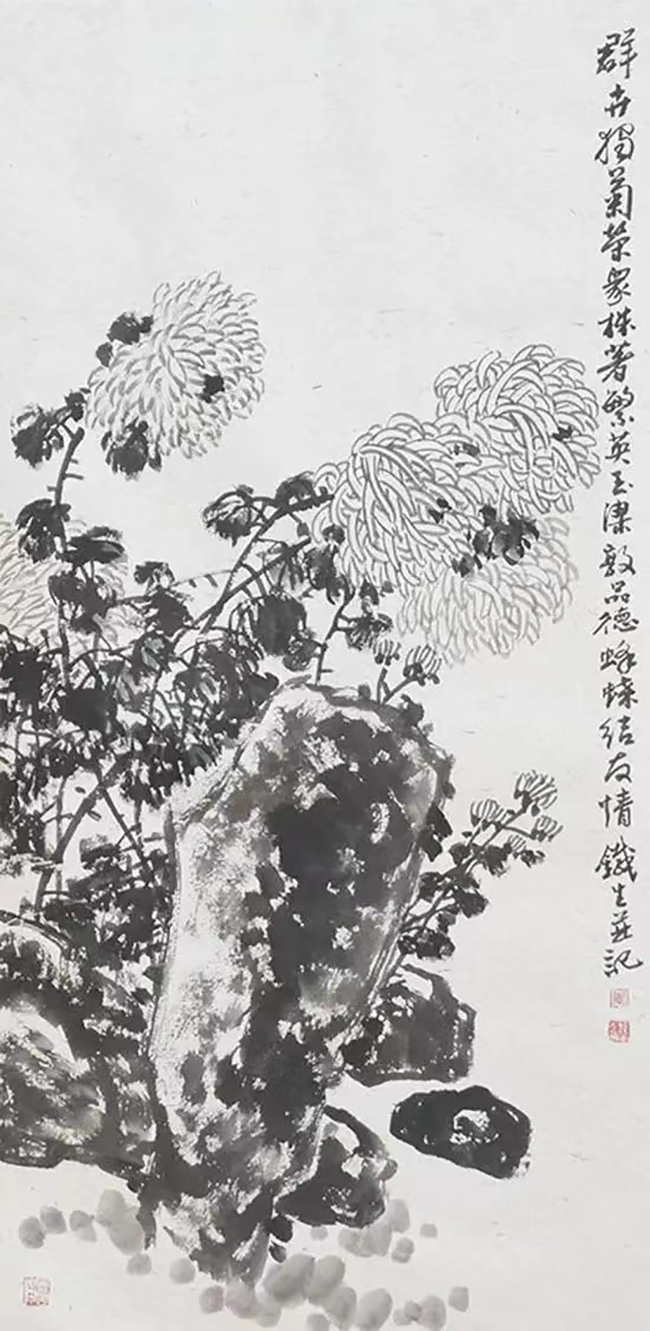 群卉独菊荣众株著繁英玉洁敦品德蜂蝶结友情鐵生并記